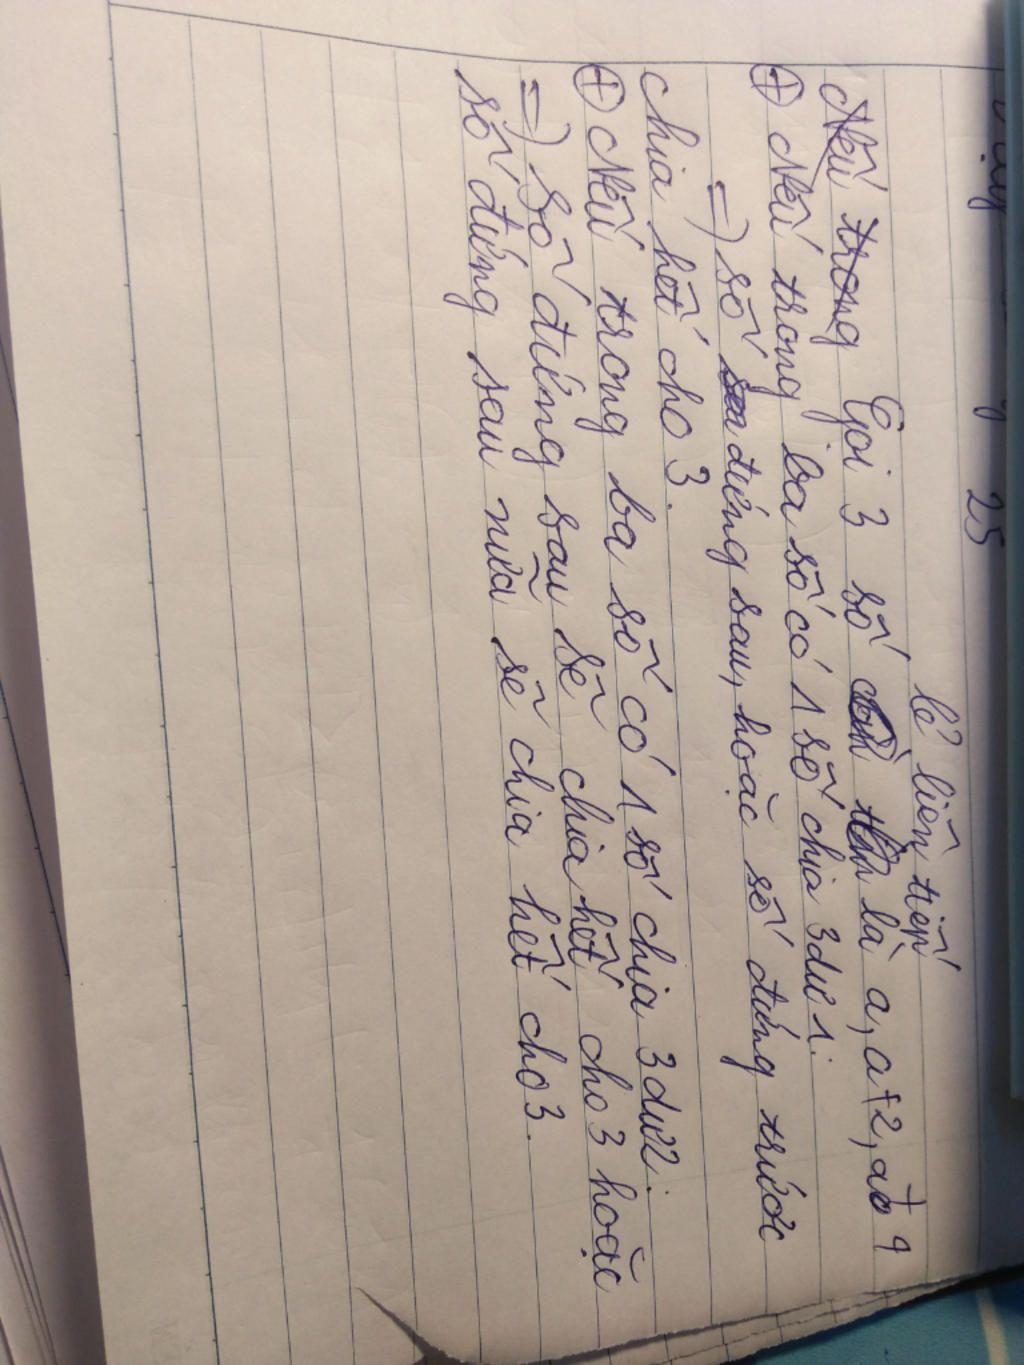 25
lẻ liên tiếp
Nếu trong Gọi 3 số là a, a+2, a+4
⊕ Nếu trong ba số có 1 số chia 3 dư 1:
=) số đứng sau, hoặc số đứng trước
chia hết cho 3.
⊕ Nếu trong ba số có 1 số chia 3 dư 2:
=) số đứng sau sẽ chia hết cho 3 hoặc
số đứng sau nữa sẽ chia hết cho 3.